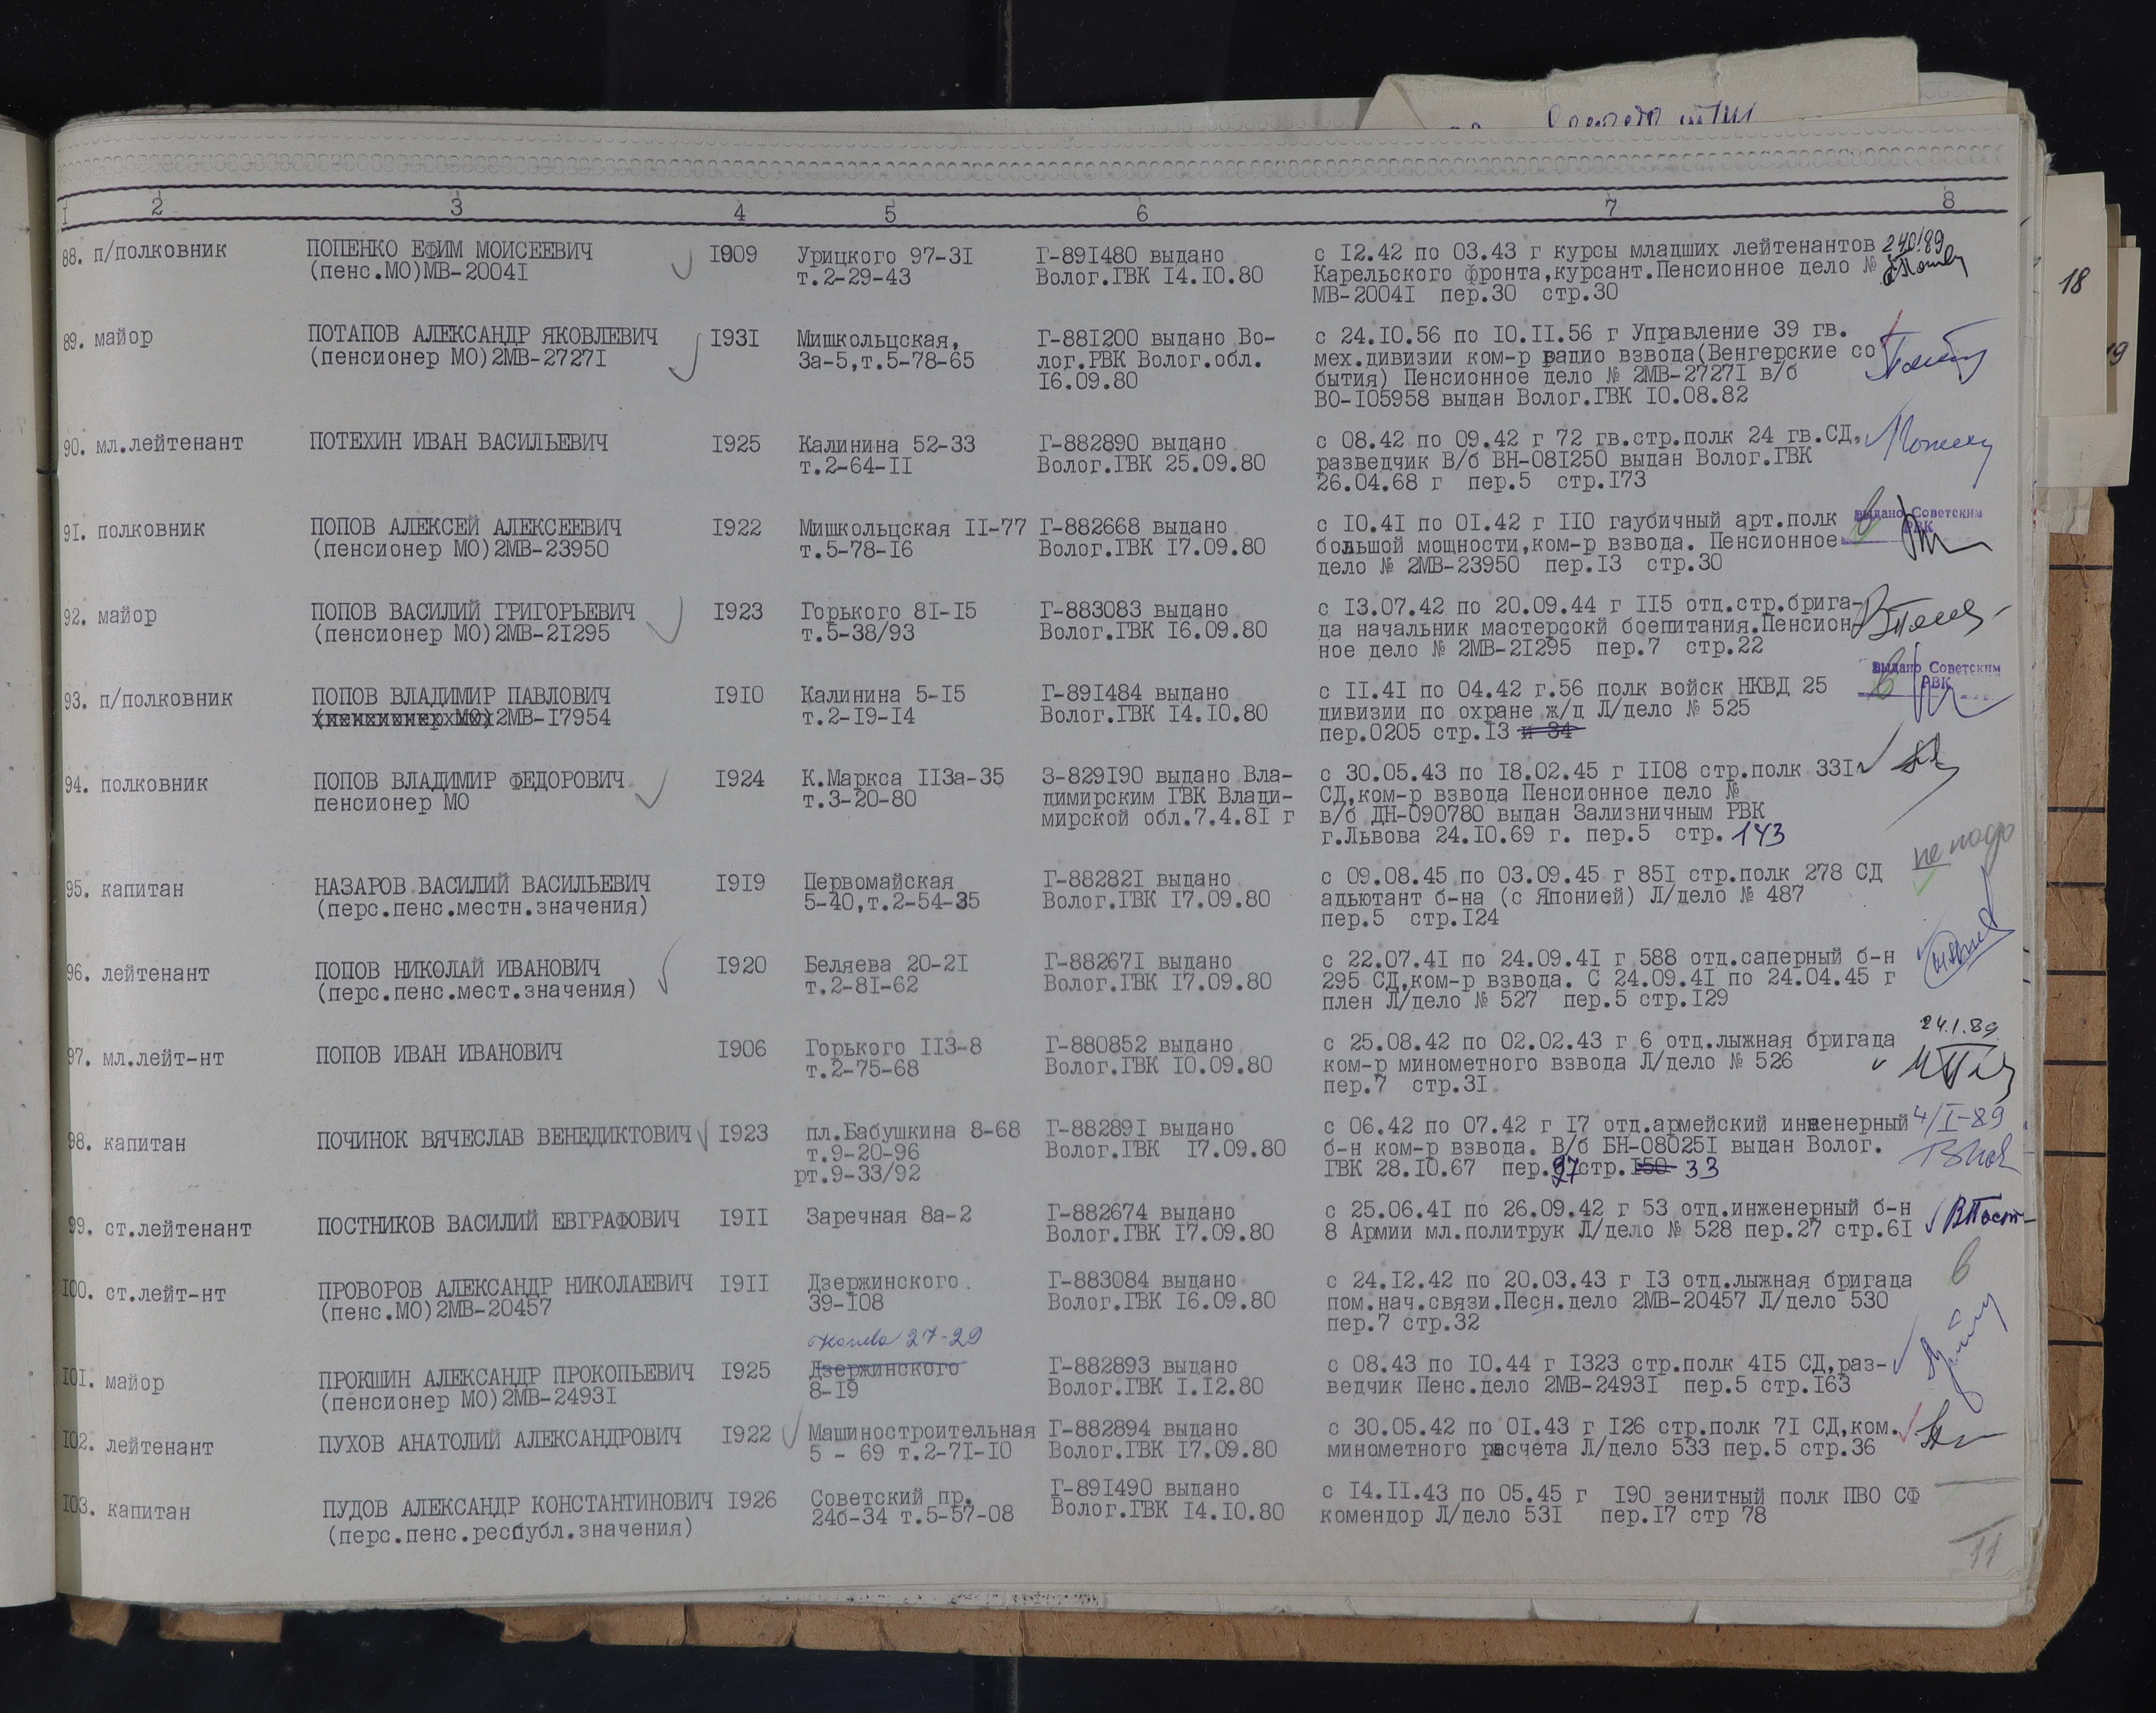 I 2 3 4 5 6 7 8
88. п/полковник ПОПЕНКО ЕФИМ МОИСЕЕВИЧ I909 Урицкого 97-3I Г-89I480 выдано с I2.42 по 03.43 г курсы младших лейтенантов
(пенс.МО)МВ-2004I т.2-29-43 Волог.ГВК I4.I0.80 Карельского фронта,курсант.Пенсионное дело №
МВ-2004I пер.30 стр.30
89. майор ПОТАПОВ АЛЕКСАНДР ЯКОВЛЕВИЧ I93I Мишкольцская, Г-88I200 выдано Во- с 24.I0.56 по I0.II.56 г Управление 39 гв.
(пенсионер МО)2МВ-2727I 3а-5,т.5-78-65 лог.РВК Волог.обл. мех.дивизии ком-р радио взвода(Венгерские со
I6.09.80 бытия) Пенсионное дело № 2МВ-2727I в/б
ВО-I05958 выдан Волог.ГВК I0.08.82
90. мл.лейтенант ПОТЕХИН ИВАН ВАСИЛЬЕВИЧ I925 Калинина 52-33 Г-882890 выдано с 08.42 по 09.42 г 72 гв.стр.полк 24 гв.СД,
т.2-64-II Волог.ГВК 25.09.80 разведчик В/б ВН-08I250 выдан Волог.ГВК
26.04.68 г пер.5 стр.I73
9I. полковник ПОПОВ АЛЕКСЕЙ АЛЕКСЕЕВИЧ I922 Мишкольцская II-77 Г-882668 выдано с I0.4I по 0I.42 г II0 гаубичный арт.полк выдано Советским
(пенсионер МО)2МВ-23950 т.5-78-I6 Волог.ГВК I7.09.80 большой мощности,ком-р взвода. Пенсионное РВК
дело № 2МВ-23950 пер.I3 стр.30
92. майор ПОПОВ ВАСИЛИЙ ГРИГОРЬЕВИЧ I923 Горького 8I-I5 Г-883083 выдано с I3.07.42 по 20.09.44 г II5 отд.стр.брига-
(пенсионер МО)2МВ-2I295 т.5-38/93 Волог.ГВК I6.09.80 да начальник мастерсокй боепитания.Пенсион
ное дело № 2МВ-2I295 пер.7 стр.22
93. п/полковник ПОПОВ ВЛАДИМИР ПАВЛОВИЧ I9I0 Калинина 5-I5 Г-89I484 выдано с II.4I по 04.42 г.56 полк войск НКВД 25 выдано Советским
(пенсионер МО)2МВ-I7954 т.2-I9-I4 Волог.ГВК I4.I0.80 дивизии по охране ж/д Л/дело № 525 РВК
пер.0205 стр.I3 и 34
94. полковник ПОПОВ ВЛАДИМИР ФЕДОРОВИЧ I924 К.Маркса II3а-35 З-829I90 выдано Вла- с 30.05.43 по I8.02.45 г II08 стр.полк 33I
пенсионер МО т.3-20-80 димирским ГВК Влади- СД,ком-р взвода Пенсионное дело №
мирской обл.7.4.8I г в/б ДН-090780 выдан Зализничным РВК
г.Львова 24.I0.69 г. пер.5 стр. 143
не надо
95. капитан НАЗАРОВ ВАСИЛИЙ ВАСИЛЬЕВИЧ I9I9 Первомайская Г-88282I выдано с 09.08.45 по 03.09.45 г 85I стр.полк 278 СД
(перс.пенс.местн.значения) 5-40,т.2-54-35 Волог.ГВК I7.09.80 адьютант б-на (с Японией) Л/дело № 487
пер.5 стр.I24
96. лейтенант ПОПОВ НИКОЛАЙ ИВАНОВИЧ I920 Беляева 20-2I Г-88267I выдано с 22.07.4I по 24.09.4I г 588 отд.саперный б-н
(перс.пенс.мест.значения) т.2-8I-62 Волог.ГВК I7.09.80 295 СД,ком-р взвода. С 24.09.4I по 24.04.45 г
плен Л/дело № 527 пер.5 стр.I29
97. мл.лейт-нт ПОПОВ ИВАН ИВАНОВИЧ I906 Горького II3-8 Г-880852 выдано с 25.08.42 по 02.02.43 г 6 отд.лыжная бригада 24.1.89
т.2-75-68 Волог.ГВК I0.09.80 ком-р минометного взвода Л/дело № 526
пер.7 стр.3I
98. капитан ПОЧИНОК ВЯЧЕСЛАВ ВЕНЕДИКТОВИЧ I923 пл.Бабушкина 8-68 Г-88289I выдано с 06.42 по 07.42 г I7 отд.армейский инженерный 4/I-89
т.9-20-96 Волог.ГВК I7.09.80 б-н ком-р взвода. В/б БН-08025I выдан Волог.
рт.9-33/92 ГВК 28.I0.67 пер.27 стр.I50 33
99. ст.лейтенант ПОСТНИКОВ ВАСИЛИЙ ЕВГРАФОВИЧ I9II Заречная 8а-2 Г-882674 выдано с 25.06.4I по 26.09.42 г 53 отд.инженерный б-н ВПост
Волог.ГВК I7.09.80 8 Армии мл.политрук Л/дело № 528 пер.27 стр.6I
I00. ст.лейт-нт ПРОВОРОВ АЛЕКСАНДР НИКОЛАЕВИЧ I9II Дзержинского Г-883084 выдано с 24.I2.42 по 20.03.43 г I3 отд.лыжная бригада
(пенс.МО)2МВ-20457 39-I08 Волог.ГВК I6.09.80 пом.нач.связи.Песн.дело 2МВ-20457 Л/дело 530
пер.7 стр.32
27-29
I0I. майор ПРОКШИН АЛЕКСАНДР ПРОКОПЬЕВИЧ I925 Дзержинского Г-882893 выдано с 08.43 по I0.44 г I323 стр.полк 4I5 СД,раз-
(пенсионер МО)2МВ-2493I 8-I9 Волог.ГВК I.I2.80 ведчик Пенс.дело 2МВ-2493I пер.5 стр.I63
I02. лейтенант ПУХОВ АНАТОЛИЙ АЛЕКСАНДРОВИЧ I922 Машиностроительная Г-882894 выдано с 30.05.42 по 0I.43 г I26 стр.полк 7I СД,ком.
5 - 69 т.2-7I-I0 Волог.ГВК I7.09.80 минометного расчета Л/дело 533 пер.5 стр.36
I03. капитан ПУДОВ АЛЕКСАНДР КОНСТАНТИНОВИЧ I926 Советский пр. Г-89I490 выдано с I4.II.43 по 05.45 г I90 зенитный полк ПВО СФ
(перс.пенс.республ.значения) 24б-34 т.5-57-08 Волог.ГВК I4.I0.80 комендор Л/дело 53I пер.I7 стр 78
11
18